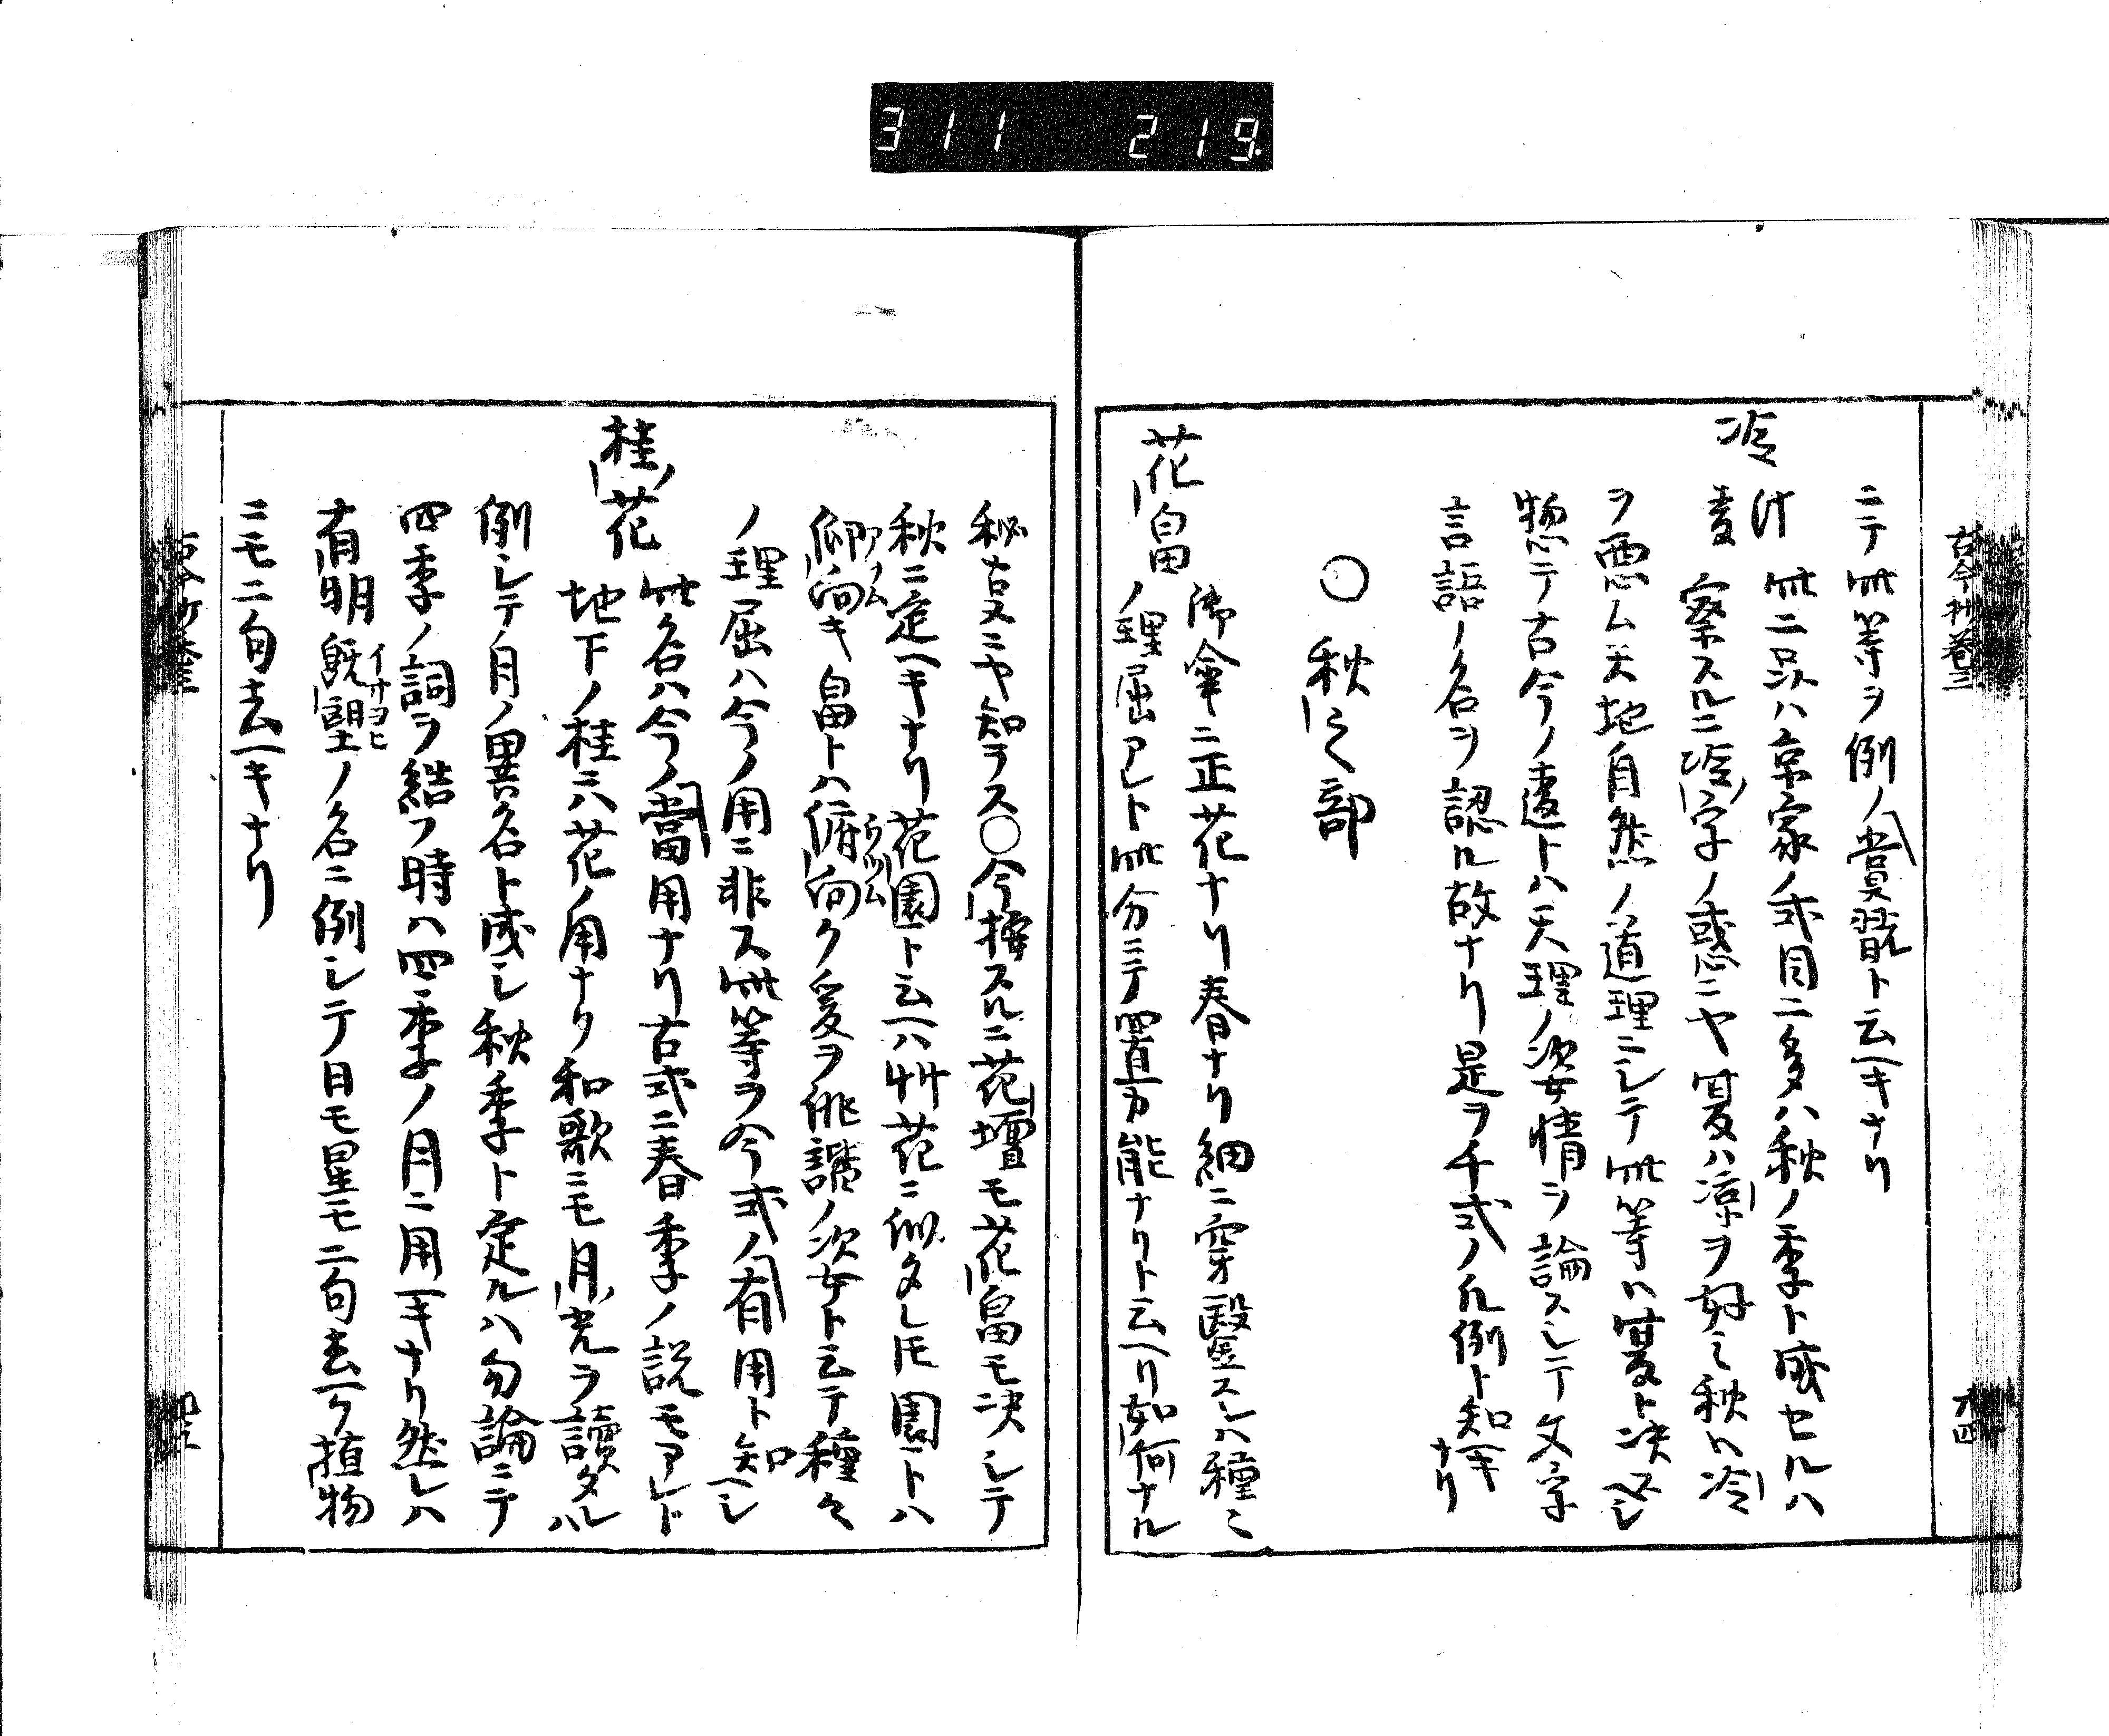 311 219
古今抄巻三
九四
ニテ此等ヲ例ノ賞翫ト云ヘキナリ
冷
汁 此二品ハ京家ノ式目ニ多ハ秋ノ季ト成セルハ
麦 察スルニ冷字ノ惑ニヤ夏ハ涼ヲ好ミ秋ハ冷
ヲ悪ム天地自然ノ道理ニシテ此等ハ夏ト決スヘシ
惣テ古今ノ違トハ天理ノ姿情ヲ論スシテ文字
言語ノ名ヲ認ル故ナリ是ヲ千式ノ凡例ト知ヘキナリ
○秋之部
花畠 御傘ニ正花ナリ春ナリ細ニ穿鑿スレハ種々
ノ理屈アレト此分ニテ置カ能ナリト云ヘリ如何ナル
秘古文ニヤ知ラス○今按スルニ花壇モ花畠モ決シテ
秋ニ定ヘキナリ花園ト云ヘハ艸花ニ似タレ𪜈園トハ
仰向キ畠トハ俯向ク爰ヲ俳諧ノ姿ト云テ種々
アヲノム
ウツム
ノ理屈ハ今ノ用ニ非ス此等ヲ今式ノ有用ト知ヘシ
桂ノ花 此名ハ今ノ當用ナリ古式ニ春季ノ説モアレド
地下ノ桂ニハ花ノ用ナク和歌ニモ月ノ光ヲ讀タレハ
例シテ月ノ異名ト成シ秋季ト定ルハ勿論ニテ
四季ノ詞ヲ結フ時ハ四季ノ月ニ用ヘキナリ然レハ
有明既望ノ名ニ例シテ月モ星モ二句去ヘク植物
イサヨヒ
ニモ二句去ヘキナリ